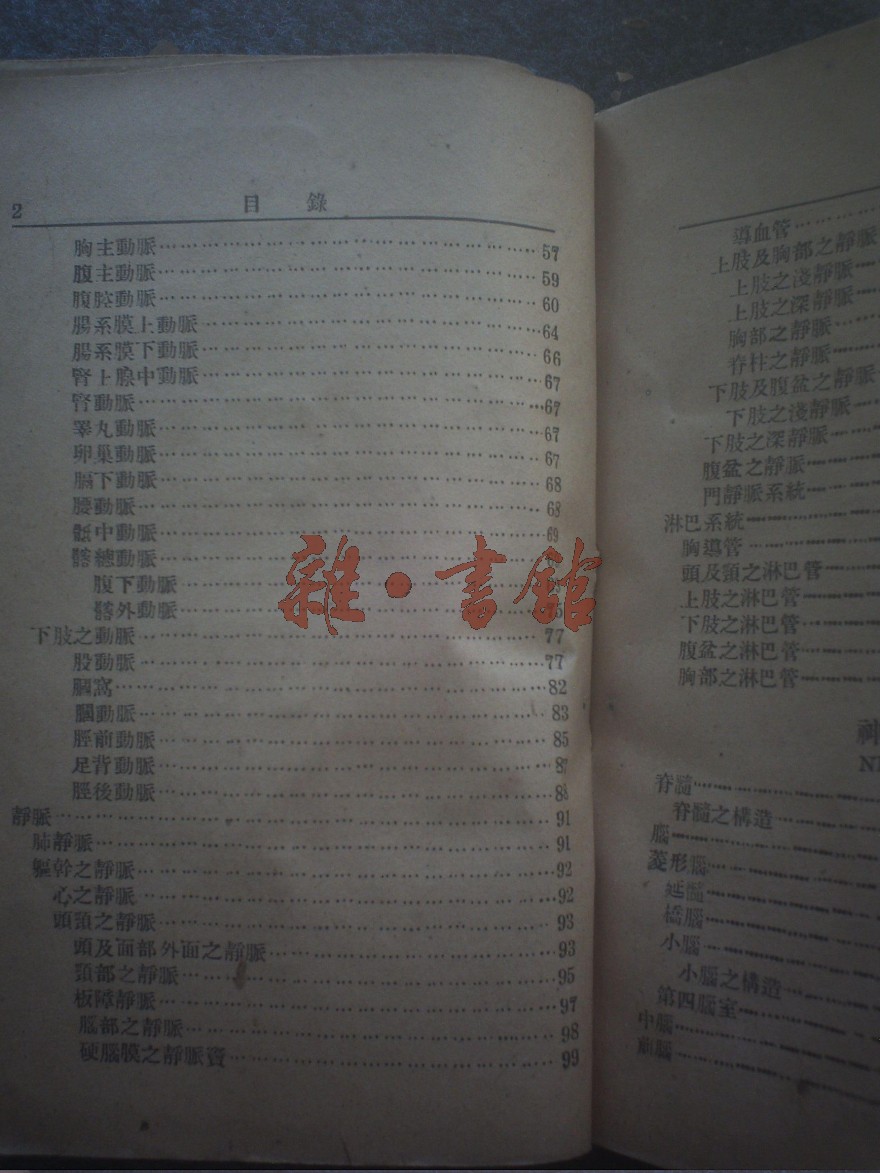 2
目錄
胸主動脈 57
腹主動脈 59
腹腔動脈 60
腸系膜上動脈 64
腸系膜下動脈 66
腎上腺中動脈 67
腎動脈 67
睪丸動脈 67
卵巢動脈 67
膈下動脈 68
腰動脈 68
骶中動脈 69
髂總動脈
腹下動脈
髂外動脈 75
下肢之動脈 77
股動脈 77
膕窩 82
膕動脈 83
脛前動脈 85
足背動脈 87
脛後動脈 88
靜脈 91
肺靜脈 91
軀幹之靜脈 92
心之靜脈 92
頭頸之靜脈 93
頭及面部外面之靜脈 93
頸部之靜脈 95
板障靜脈 97
腦部之靜脈 98
硬腦膜之靜脈竇 99
雜·書館
導血管
上肢及胸部之靜脈
上肢之淺靜脈
上肢之深靜脈
胸部之靜脈
脊柱之靜脈
下肢及腹盆之靜脈
下肢之淺靜脈
下肢之深靜脈
腹盆之靜脈
門靜脈系統
淋巴系統
胸導管
頭及頸之淋巴管
上肢之淋巴管
下肢之淋巴管
腹盆之淋巴管
胸部之淋巴管
神
脊髓
脊髓之構造
腦
菱形腦
延髓
橋腦
小腦
小腦之構造
第四腦室
中腦
前腦